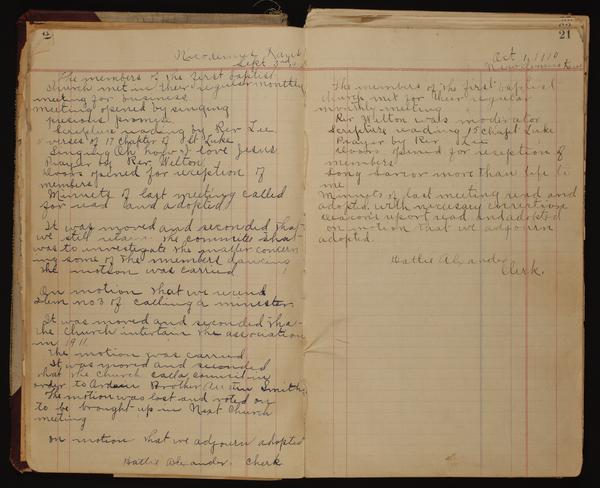 Nicodemus Kans
Sept 3rd
The members of the first baptist
Church met in their regular monthly
meeting for business
meeting opened by singing
precious promise
Scripture reading by Rev Lee
verses of 17 chapter of St Luke
Singing Oh how I love Jesus
Prayer by Rev. Welton
Doors opened for reception of
members
Minuets of last meeting called
for read and adopted
It was moved and seconded that
we still retain the committe that
was to investigate the matter concern
ing some of the members dancing
the motion was carried
On motion that we
item no 3 of calling a minister
It was moved and seconded that
the Church intertain the association
in 1911
the motion was carried
It was moved and seconded
that the Church call a council in
order to Brother Smith
The motion was lost and voted on
to be brought up in Next Church
meeting
on motion that we adjourn adopted
Hattie Alexander. Clerk
21
Oct 1, 1910
Nicodemus Kan
The members of the first baptist
church met for their regular
monthly meeting
Rev Welton was moderator
Scripture reading 15 chapt Luke
Prayer by Rev Lee
Doors opened for reception of
members
Song Savior more than life to
me
Minuets of last meeting read and
adopted with necessary correction
Deacon's report read and adopted
on motion that we adjourn
adopted.
Hattie Alexander
Clerk.